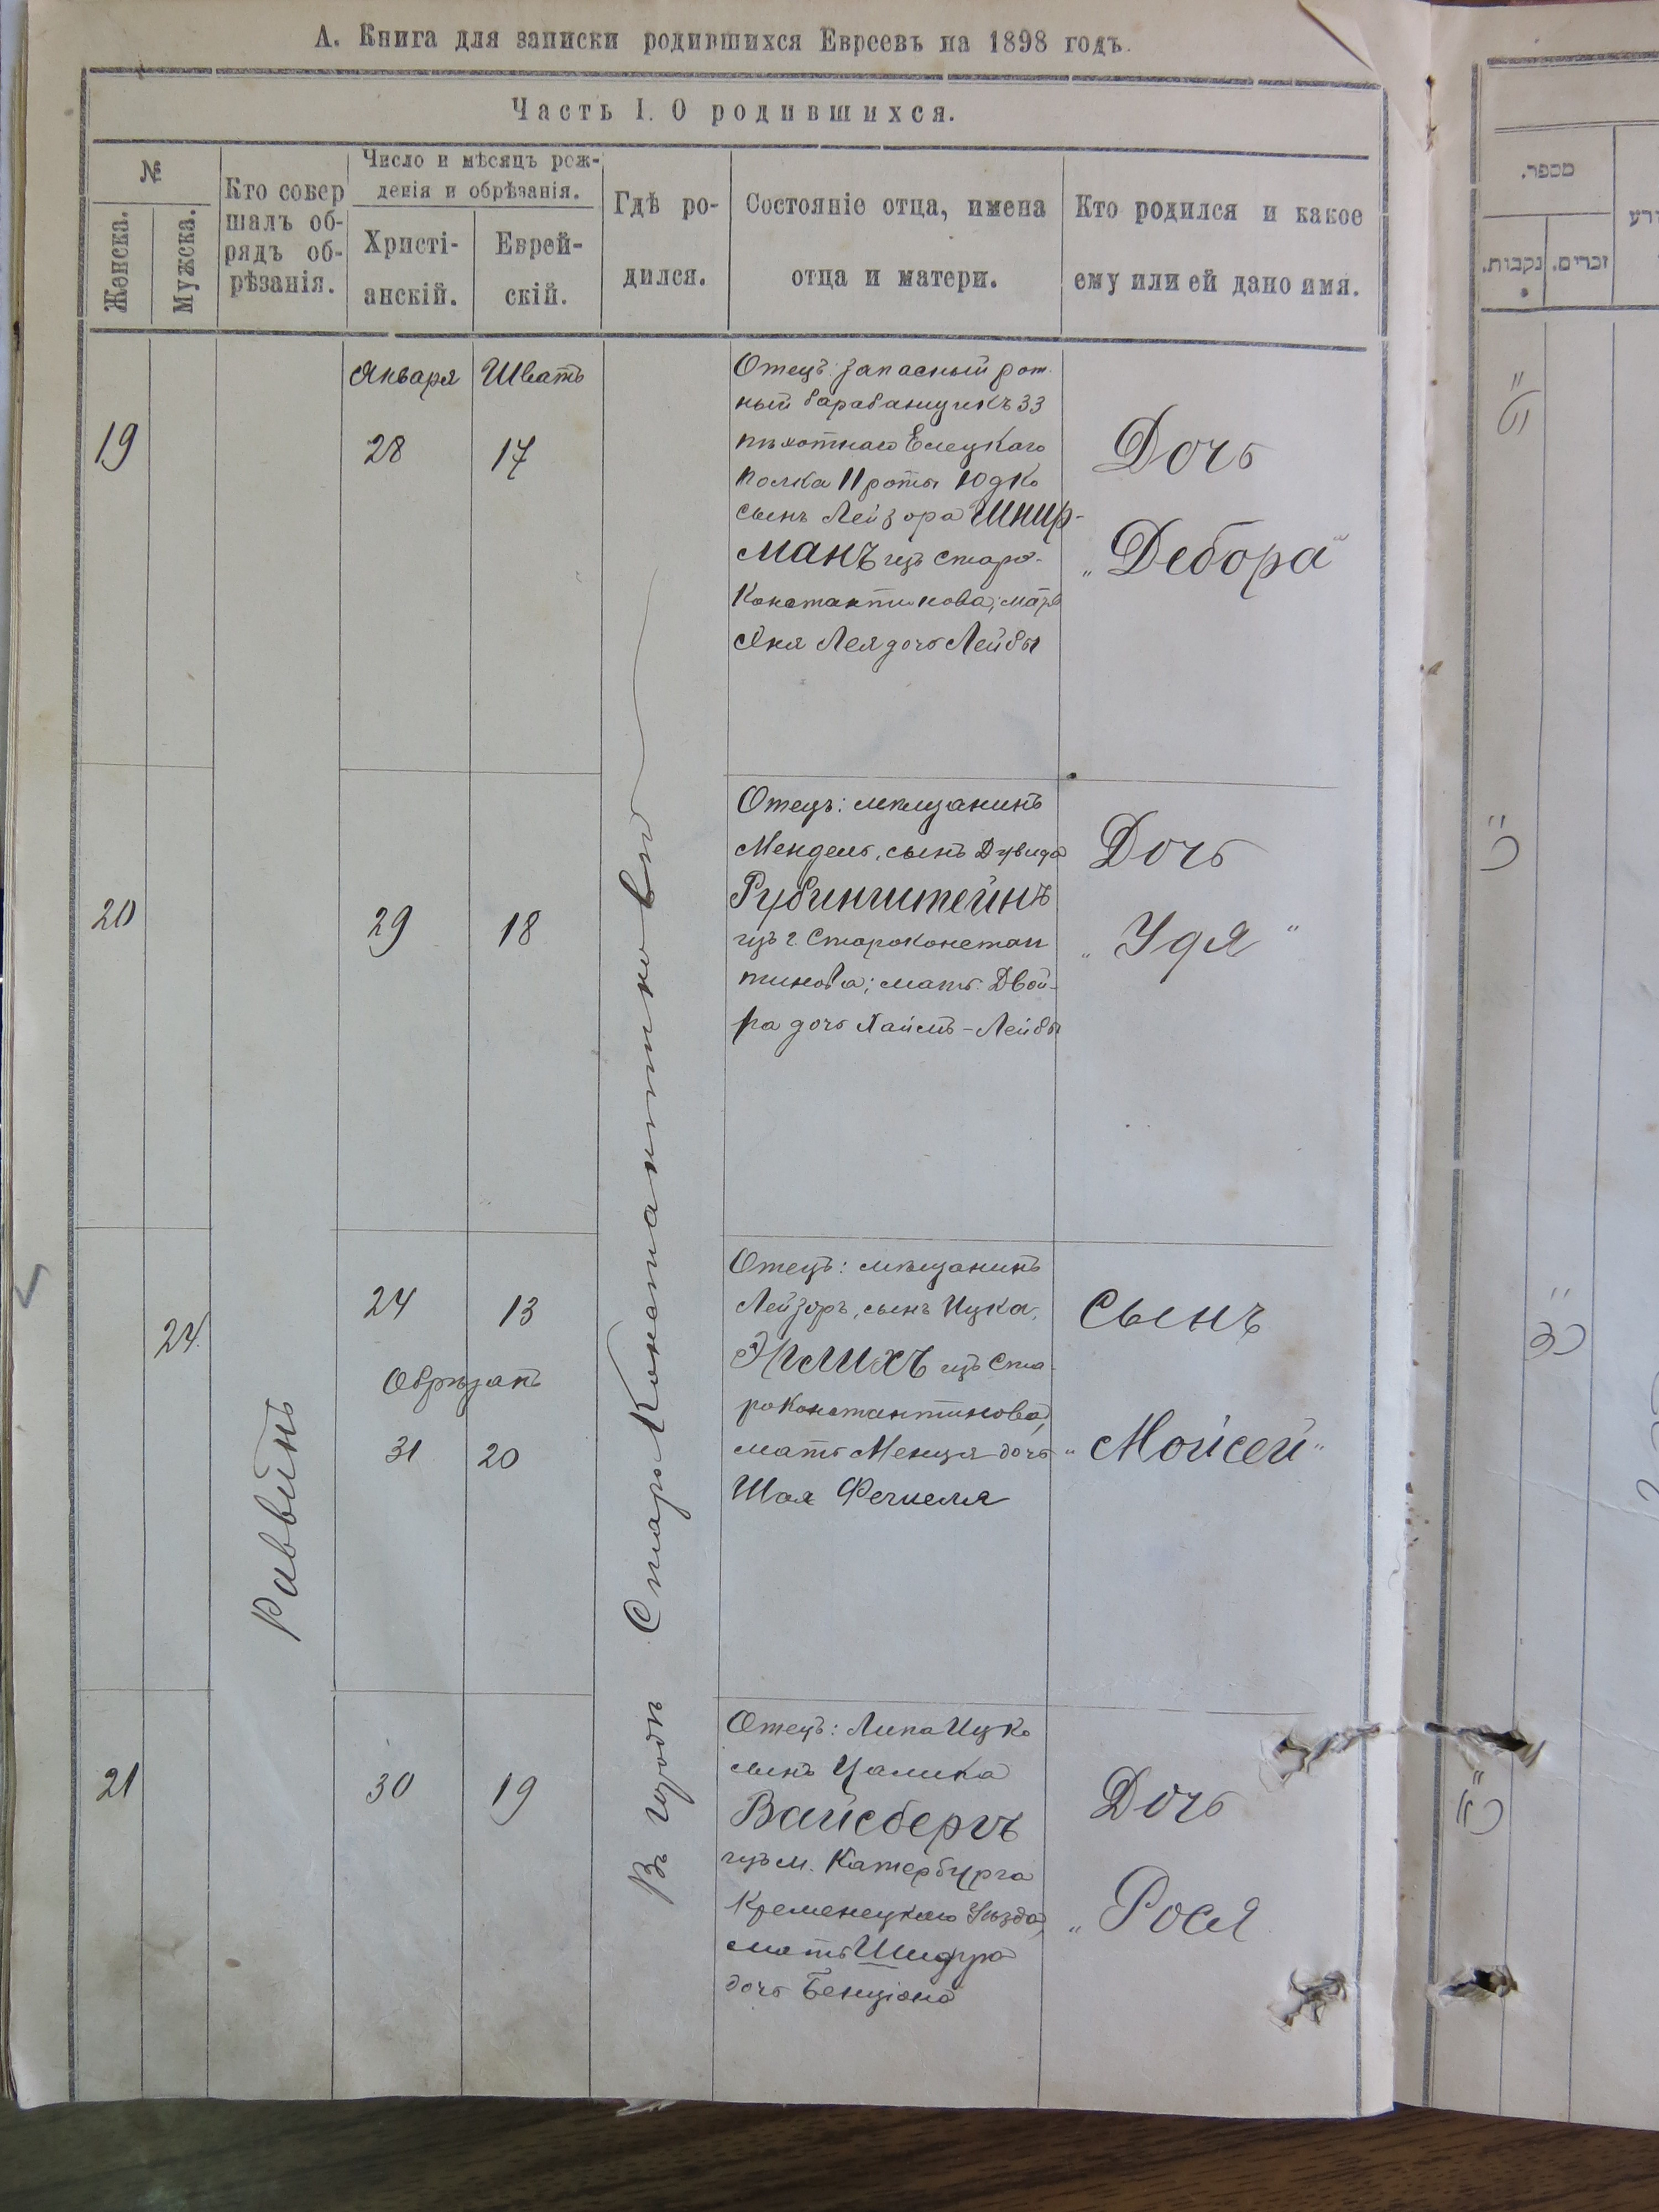 А. Книга для записки родившихся Евреевъ на 1898 годъ.
Часть I. О родившихся.
№
Женска.
Мужска.
Кто совер
шалъ об-
рядъ об-
рѣзанія.
Число и мѣсяцъ рож-
денія и обрѣзанія.
Христі-
анскій.
Еврей-
скій.
Гдѣ ро-
дился.
Состояніе отца, имена
отца и матери.
Кто родился и какое
ему или ей дано имя.
מספר.
נקבות.
זכרים.
Раввинъ
Въ городѣ Староконстантиновѣ
19
Января
28
Шватъ
17
Отецъ: запасный рот
ный барабанщикъ 33
пѣхотнаго Елецкаго
полка 11 роты Юдко
сынъ Лейзора Шнир-
манъ изъ Старо-
константинова; мать
Яня Лея дочь Лейбы
Дочь
„Дебора"
20
29
18
Отецъ: мѣщанинъ
Мендель, сынъ Дувида
Рубинштейнъ
изъ г. Староконстан
тинова; мать Двой-
ра дочь Хаимъ-Лейбы
Дочь
„Удя"
24.
24
13
Обрѣзанъ
31
20
Отецъ: мѣщанинъ
Лейзоръ, сынъ Ицка
Эрлихъ изъ Ста-
роконстантинова,
мать Менця дочь
Шая
Сынъ
„Мойсей"
21
30
19
Отецъ: Липа Ицко
сынъ Цалика
Вайсбергъ
изъ м. Катербурга
Кременецкаго Уѣзда,
мать
дочь Бенціона
Дочь
„Рося